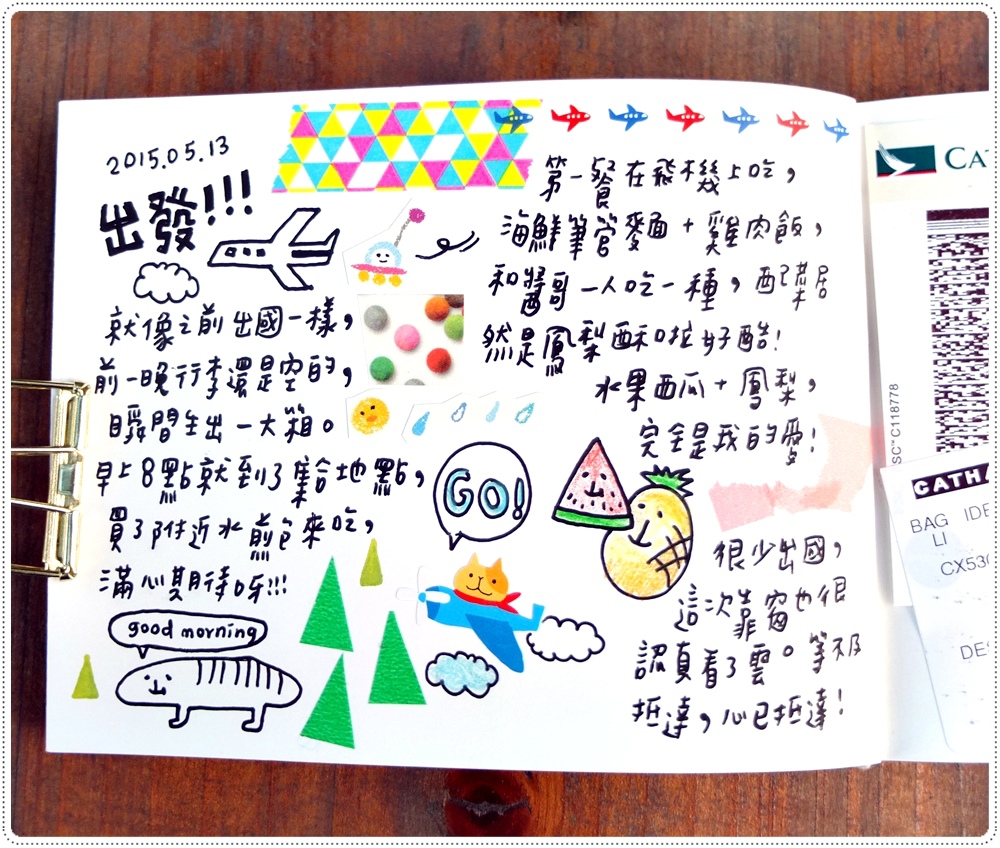 2015.05.13
出發!!!
就像之前出國一樣，
前一晚行李還是空的，
瞬間生出一大箱。
早上8點就到了集合地點，
買了附近水煎包來吃，
滿心期待呀!!!
good morning
GO!
第一餐在飛機上吃，
海鮮筆管麵+雞肉飯，
和醬哥一人吃一種，配菜居
然是鳳梨酥和啦好酷!
水果西瓜+鳳梨，
完全是我的愛!
很少出國，
這次靠窗也很
認真看了雲。等不及
抵達，心已抵達!
CA
SC™ C118778
CATHA
BAG IDE
LI
CX530
DES